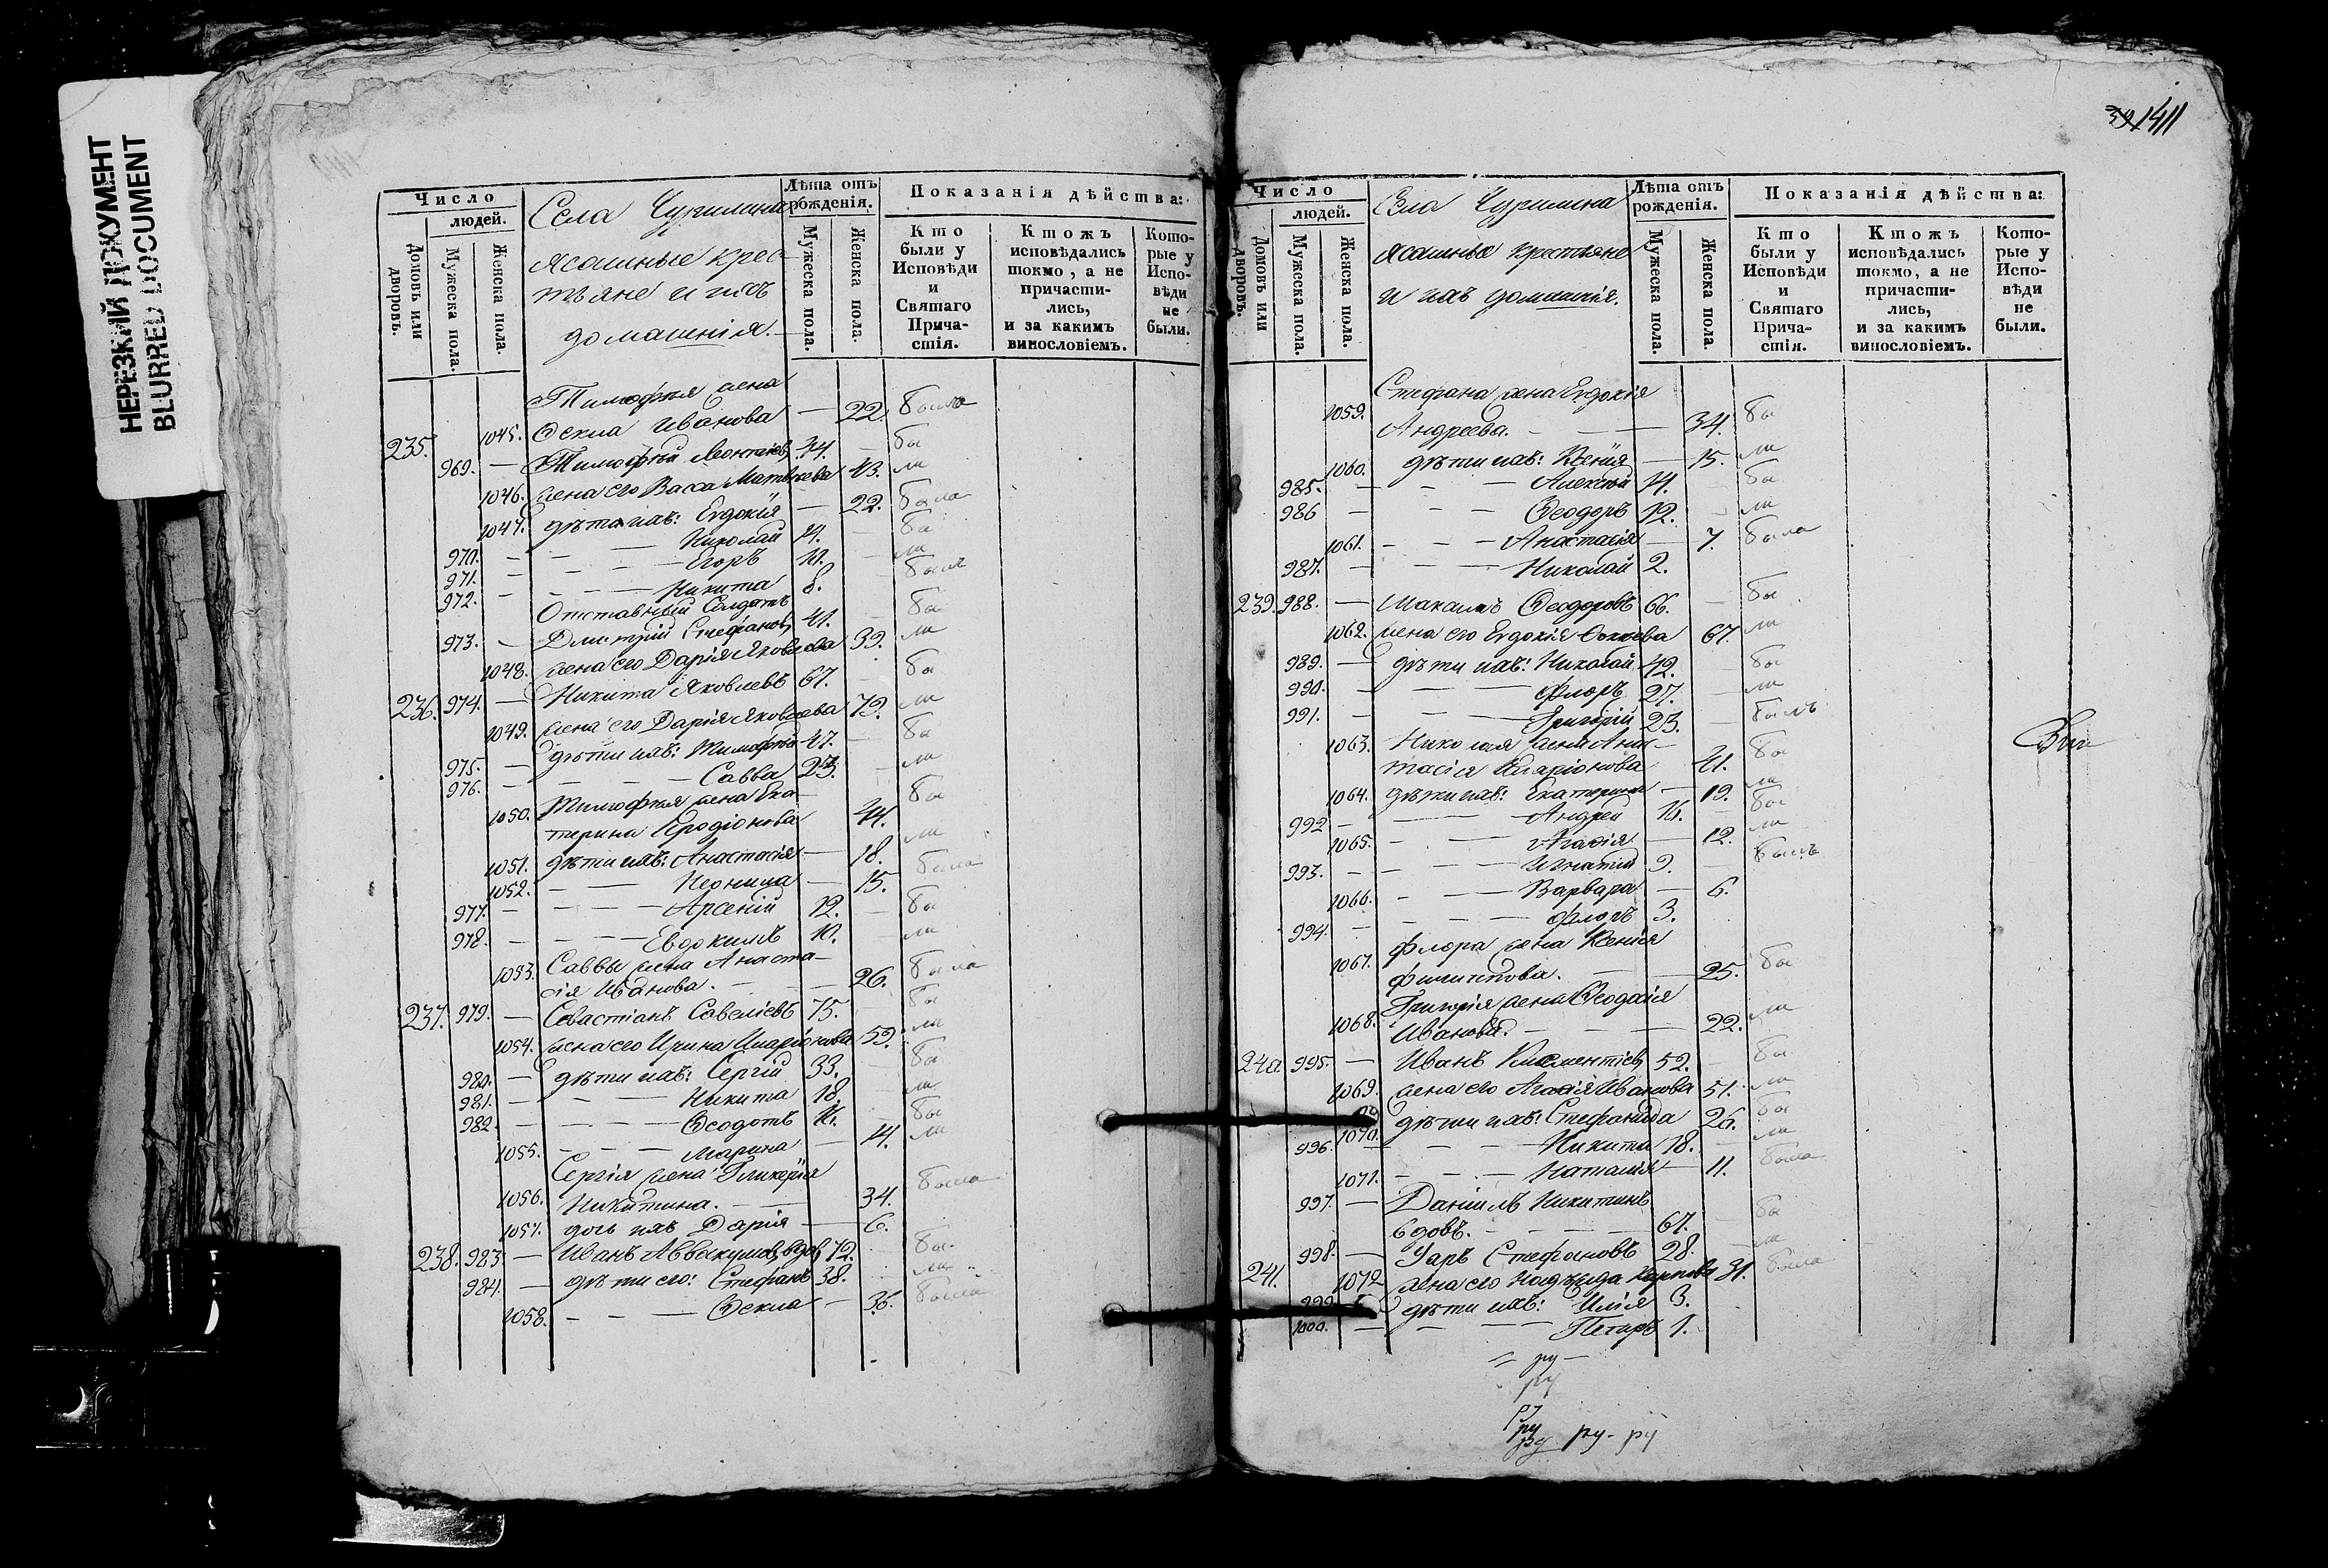 НЕРЕЗКИЙ ДОКУМЕНТ
BLURRED DOCUMENT
Число
людей.
Домовъ или дворовъ.
Мужеска пола.
Женска пола.
Села Чурилина
Ясашные крес-
тьяне и ихъ
домашнія.
Лѣта отъ рожденія.
Мужеска пола.
Женска пола.
Показанія дѣйства:
Кто были у Исповѣди и Святаго Причастія.
Ктожъ исповѣдались токмо, а не причастились, и за какимъ винословіемъ.
Которые у Исповѣди не были.
Тимофея жена
1045. Ѳекла Иванова — 22. была
235. 969. — Тимофей Леонтіевъ 44. бы
1046. жена его Васса Матвѣева 43. ли
1047. дѣти ихъ: Евдокія — 22. была
970. — Николай 14. бы
971. — Егоръ 11. ли
972. — Никита 8. былъ
Отставный Солдатъ
973. — Дмитрій Стефановъ 41. бы
1048. жена его Дарія Яковлева 39. ли
236. 974. — Никита Яковлевъ 67. бы
1049. жена его Дарія Яковлева 79. ли
975. — дѣти ихъ: Тимофей 47. бы
976. — Савва 23. ли
1050. Тимофея жена Ека-
терина Иродіонова 44. бы
1051. дѣти ихъ: Анастасія — 18. ли
1052. — Неонила — 15. была
977. — Арсеній 12. бы
978. — Евдокимъ 10. ли
1053. Саввы жена Анаста-
сія Иванова. — 26. была
237. 979. — Севастіанъ Савеліевъ 75. бы
1054. жена его Ирина Иларіонова 59. ли
980. — дѣти ихъ: Сергій 33. бы
981. — Никита 18. ли
982. — Ѳеодотъ 16. бы
1055. — Марина — 14. ли
Сергія жена Гликерія
1056. Никитина. — 34. была
1057. дочь ихъ Дарія — 6.
238. 983. — Иванъ Аввакумовъ, вдовъ 72. бы
984. — дѣти его: Стефанъ 38. ли
1058. — Ѳекла — 36. была
1411
Число
людей.
Домовъ или дворовъ.
Мужеска пола.
Женска пола.
Села Чурилина
ясашные крестьяне
и ихъ домашнія.
Лѣта отъ рожденія.
Мужеска пола.
Женска пола.
Показанія дѣйства:
Кто были у Исповѣди и Святаго Причастія.
Ктожъ исповѣдались токмо, а не причастились, и за какимъ винословіемъ.
Которые у Исповѣди не были.
Стефана жена Евдокія
1059. Андреева. — 34. бы
1060. дѣти ихъ: Ксенія — 15. ли
985. — Алексѣй 14. бы
986 — Ѳеодоръ 12. ли
1061. — Анастасія — 7. была
987. — Николай 2.
239. 988. — Максимъ Ѳеодоровъ 66. бы
1062. жена его Евдокія 67. ли
989. — дѣти ихъ: Николай 42. бы
990. — Флоръ 27. ли
991. — Григорій 23. былъ
1063. Николая жена Анас-
тасія Иларіонова 41. бы
1064. дѣти ихъ: Екатерина — 19. ли
992 — Андрей 16. бы
1065. — Агафія — 12. ли
993. — Игнатій 9. былъ
1066. — Варвара — 6.
994. — Флоръ 3.
Флора жена Ксенія
1067. Филиппова. — 25. бы
Григорія жена Ѳеодосія
1068. Иванова. — 22. ли
240. 995. — Иванъ Климентіевъ 52. бы
1069. жена его Агафія Иванова 51. ли
1070. дѣти ихъ: Стефанида 26. бы
996. — Никита 18. ли
1071. — Наталія — 11. была
997. — Даніилъ Никитинъ
вдовъ. — 67. бы
998. — Уаръ Стефановъ 28. ли
241. 1072 жена его Надежда Карпова 31. была
999 дѣти ихъ: Илія 3.
1000. — Петаръ 1.
ру
ру
ру
ру
ру ру- ру